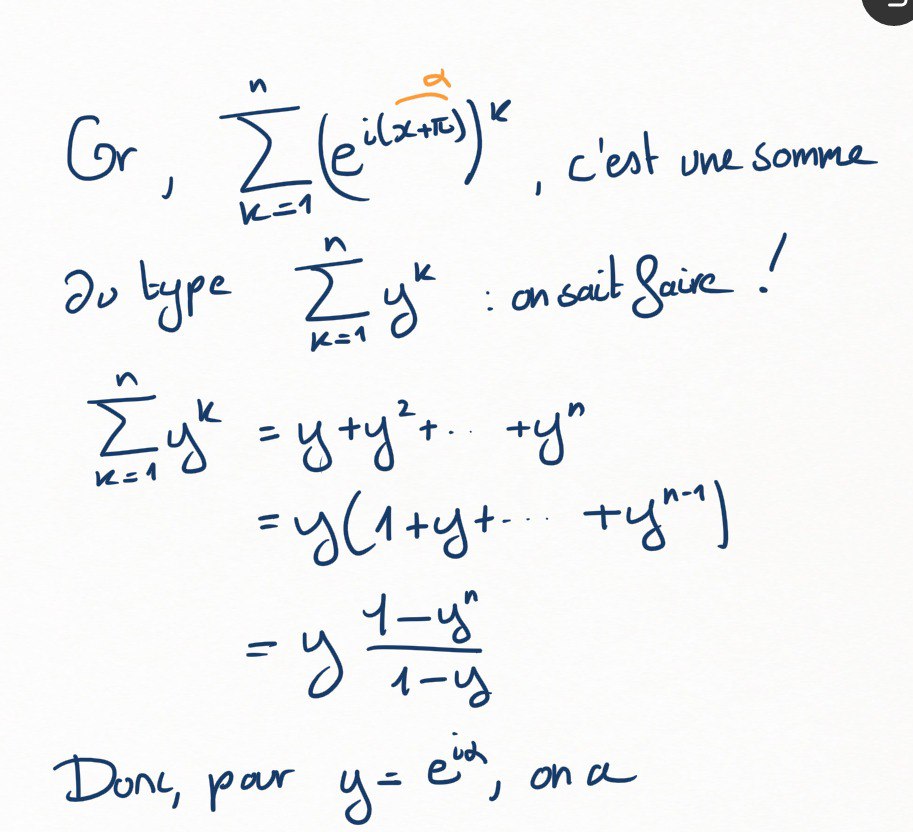 Or, ∑_{k=1}^{n} (e^{i(x+π)})^k, c'est une somme
α
du type ∑_{k=1}^{n} y^k : on sait faire !
∑_{k=1}^{n} y^k = y + y^2 + ... + y^n
= y(1 + y + ... + y^{n-1})
= y \frac{1-y^n}{1-y}
Donc, pour y = e^{iα}, on a